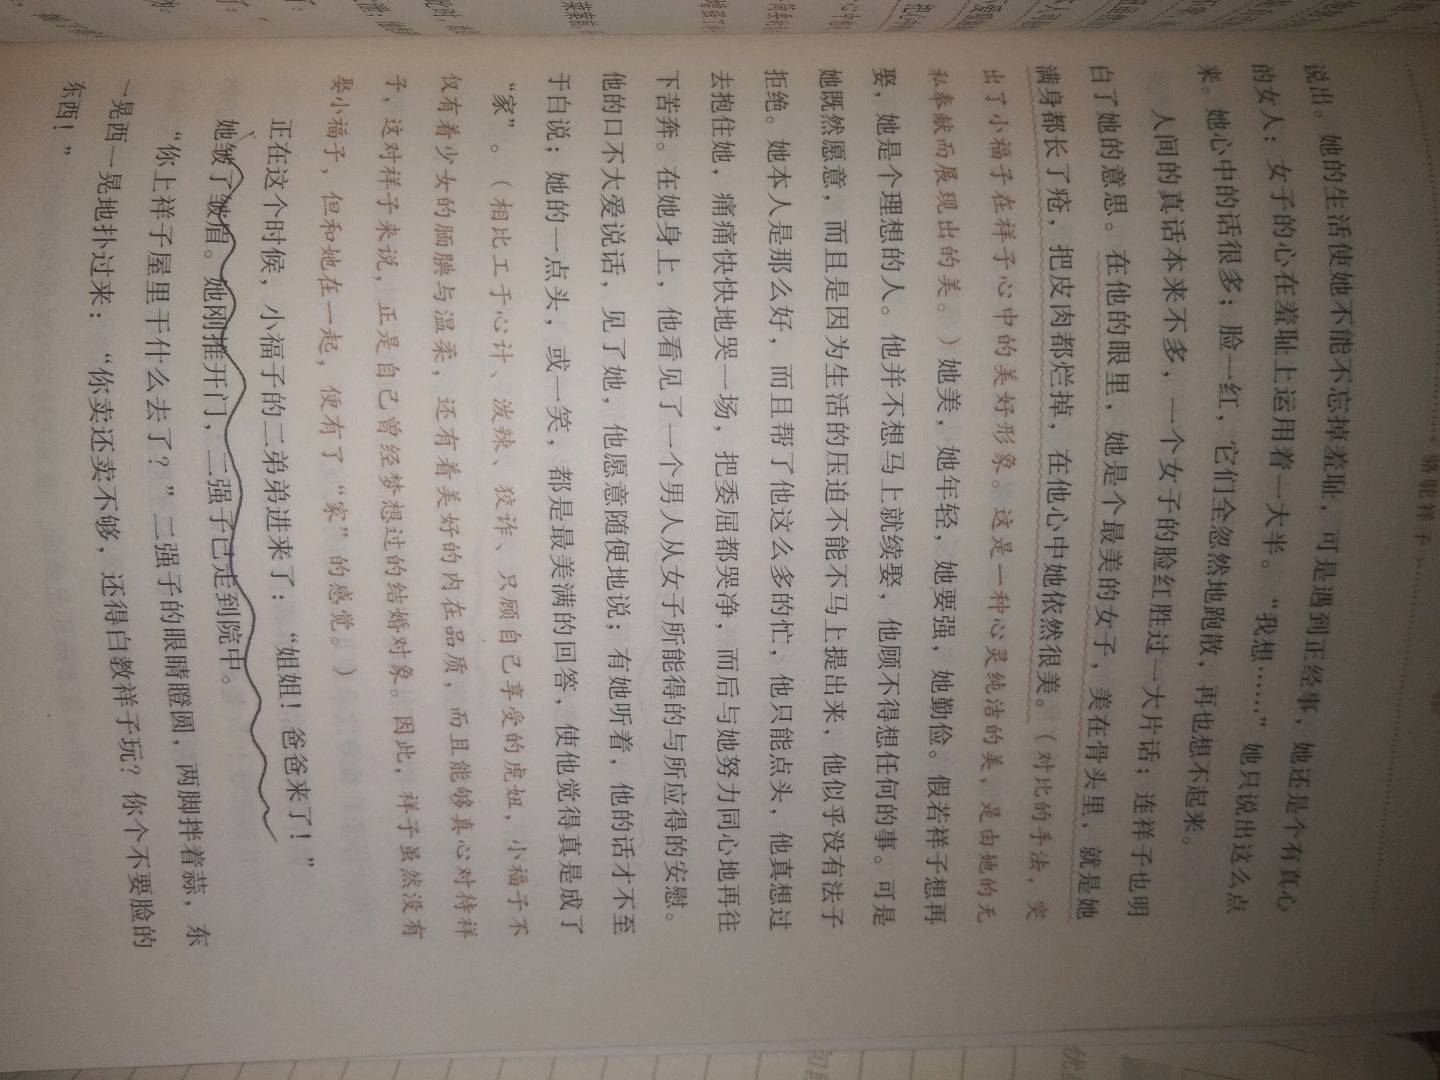 骆驼祥子
说出。她的生活使她不能不忘掉羞耻，可是遇到正经事，她还是个有真心
的女人：女子的心在羞耻上运用着一大半。“我想……”她只说出这么点
来。她心中的话很多；脸一红，它们全忽然地跑散，再也想不起来。
人间的真话本来不多，一个女子的脸红胜过一大片话；连祥子也明
白了她的意思。在他的眼里，她是个最美的女子，美在骨头里，就是她
满身都长了疮，把皮肉都烂掉，在他心中她依然很美。（对比的手法，突
出了小福子在祥子心中的美好形象。这是一种心灵纯洁的美，是由她的无
私奉献而展现出的美。）她美，她年轻，她要强，她勤俭。假若祥子想再
娶，她是个理想的人。他并不想马上就续娶，他顾不得想任何的事。可是
她既然愿意，而且是因为生活的压迫不能不马上提出来，他似乎没有法子
拒绝。她本人是那么好，而且帮了他这么多的忙，他只能点头，他真想过
去抱住她，痛痛快快地哭一场，把委屈都哭净，而后与她努力同心地再往
下苦奔。在她身上，他看见了一个男人从女子所能得的与所应得的安慰。
他的口不大爱说话，见了她，他愿意随便地说；有她听着，他的话才不至
于白说；她的一点头，或一笑，都是最美满的回答，使他觉得真是成了
“家”。（相比工于心计、泼辣、狡诈、只顾自己享受的虎妞，小福子不
仅有着少女的腼腆与温柔，还有着美好的内在品质，而且能够真心对待祥
子，这对祥子来说，正是自己曾经梦想过的结婚对象。因此，祥子虽然没有
娶小福子，但和她在一起，便有了“家”的感觉。）
正在这个时候，小福子的二弟弟进来了：“姐姐！爸爸来了！”
她皱了皱眉。她刚推开门，二强子已走到院中。
“你上祥子屋里干什么去了？”二强子的眼睛瞪圆，两脚拌着蒜，东
一晃西一晃地扑过来：“你卖还卖不够，还得白教祥子玩？你个不要脸的
东西！”